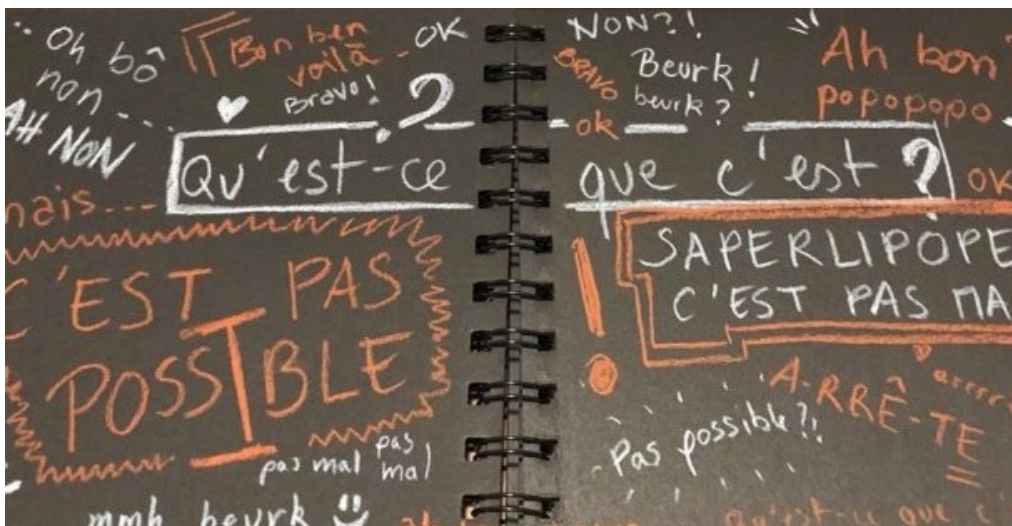 Oh bô
non---
AH NON
Bon ben
voilà -
Bravo!
OK
?
Qu'est-ce
mais---
C'EST PAS
POSSIBLE
pas mal pas
mal
mmh beurk
NON?!
BRAVO
ok
Beurk!
beurk?
Ah bon
popopopo
que c'est?
OK
!
SAPERLIPOPE
C'EST PAS MA
A-RRÊ-TE
arrrr
Pas possible?!
qu'est-ce que c